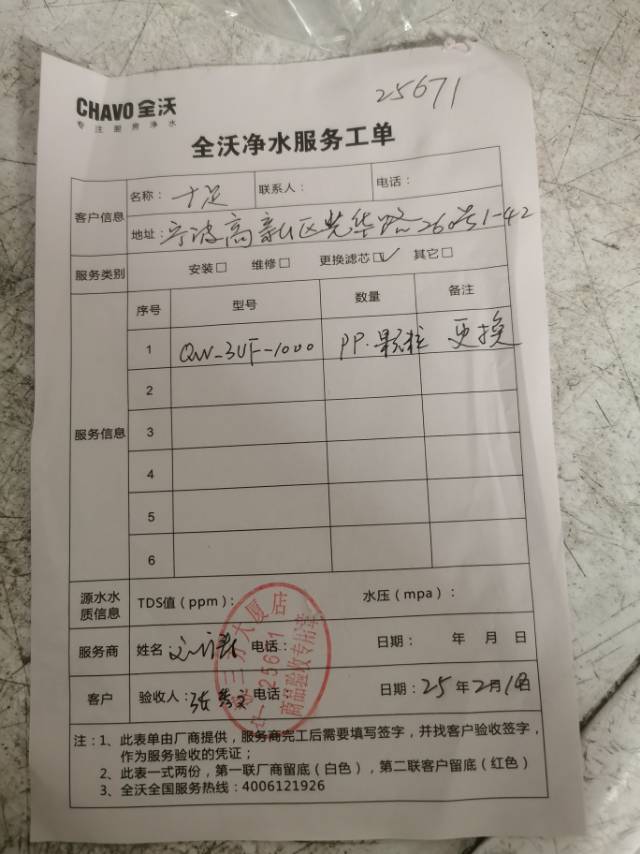 25671
CHAVO 全沃
专注厨房净水
全沃净水服务工单
客户信息 名称：十足 联系人： 电话：
地址：宁波高新区光华路260号1-42
服务类别 安装□ 维修□ 更换滤芯□✓ 其它□
服务信息 序号 型号 数量 备注
1 QW-3UF-1000 PP.颗粒 更换
2
3
4
5
6
源水水质信息 TDS值（ppm）： 水压（mpa）：
服务商 姓名 电话： 日期： 年 月 日
客户 验收人：张 电话 日期：25年2月1日
大厦店
25671
商品验收专用章
注：1、此表单由厂商提供，服务商完工后需要填写签字，并找客户验收签字，
作为服务验收的凭证；
2、此表一式两份，第一联厂商留底（白色），第二联客户留底（红色）
3、全沃全国服务热线：4006121926